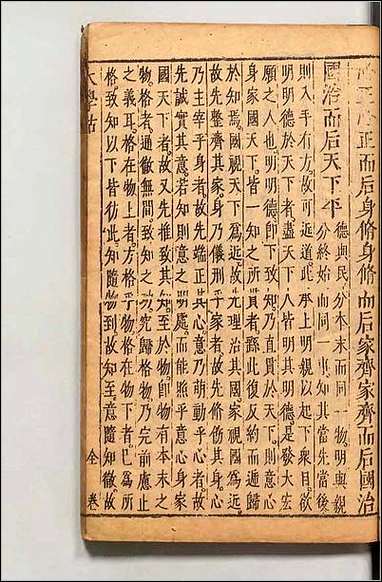 正心正而后身脩身脩而后家齊家齊而后國治
國治而后天下平
德與民分本末而同一物明與親
分終始而同一事知其當先當後
則入手有方故可近道此承上明親以起下衆目欲
明明德於天下者盡天下人皆明其明德是發大宏
願之人也明明德即下致知乃直貫於天下則意心
身家國天下皆一知之所貫者此復反約而遞歸
於知焉國視天下爲近故先理治其國家視國爲近
故先整齊其家身乃儀刑乎家者故先脩飭其身心
乃主宰乎身者故先端正其心意乃萌動乎心者故
先誠實其意若知則意之明處而能照乎意心身家
國天下者故又先推致其知至於物即物有本末之
物格者通徹無間致知之功究歸格物乃完前應止
之義耳格在物上者方格乎物格在物下者已爲所
格致知以下皆彷此知隨物到故知至意隨知徹故
大學古 全卷